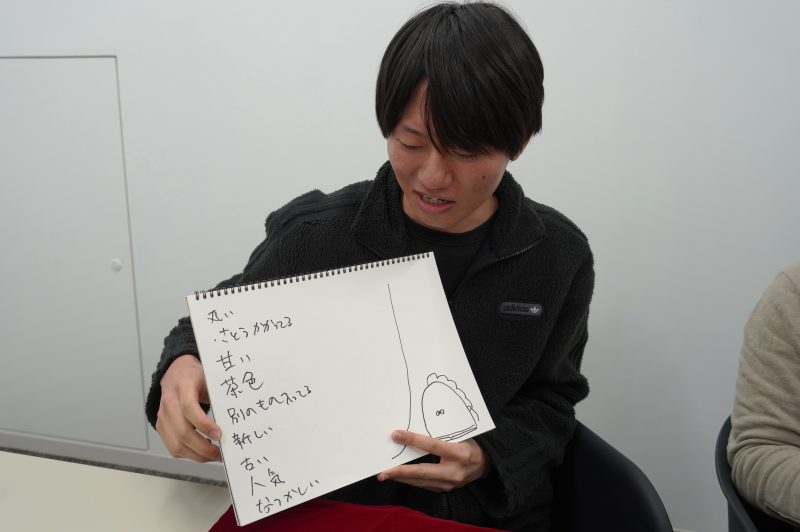 丸い
・さとうかかってる
甘い
茶色
別のもの入ってる
新しい
古い
人気
なつかしい
adidas